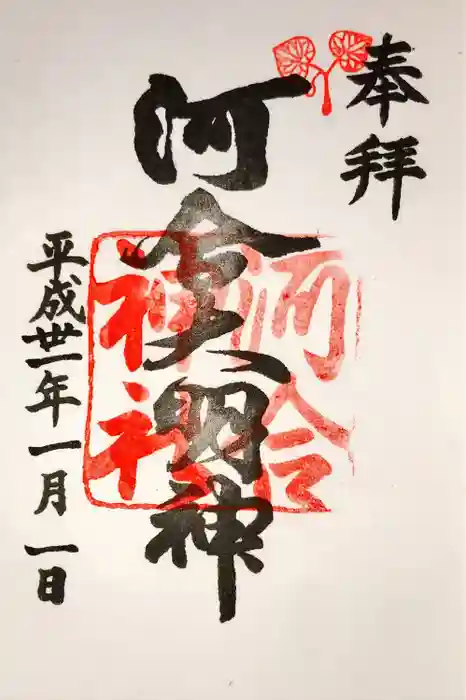 奉拝
河合大明神
河合
神社
平成丗一年一月一日